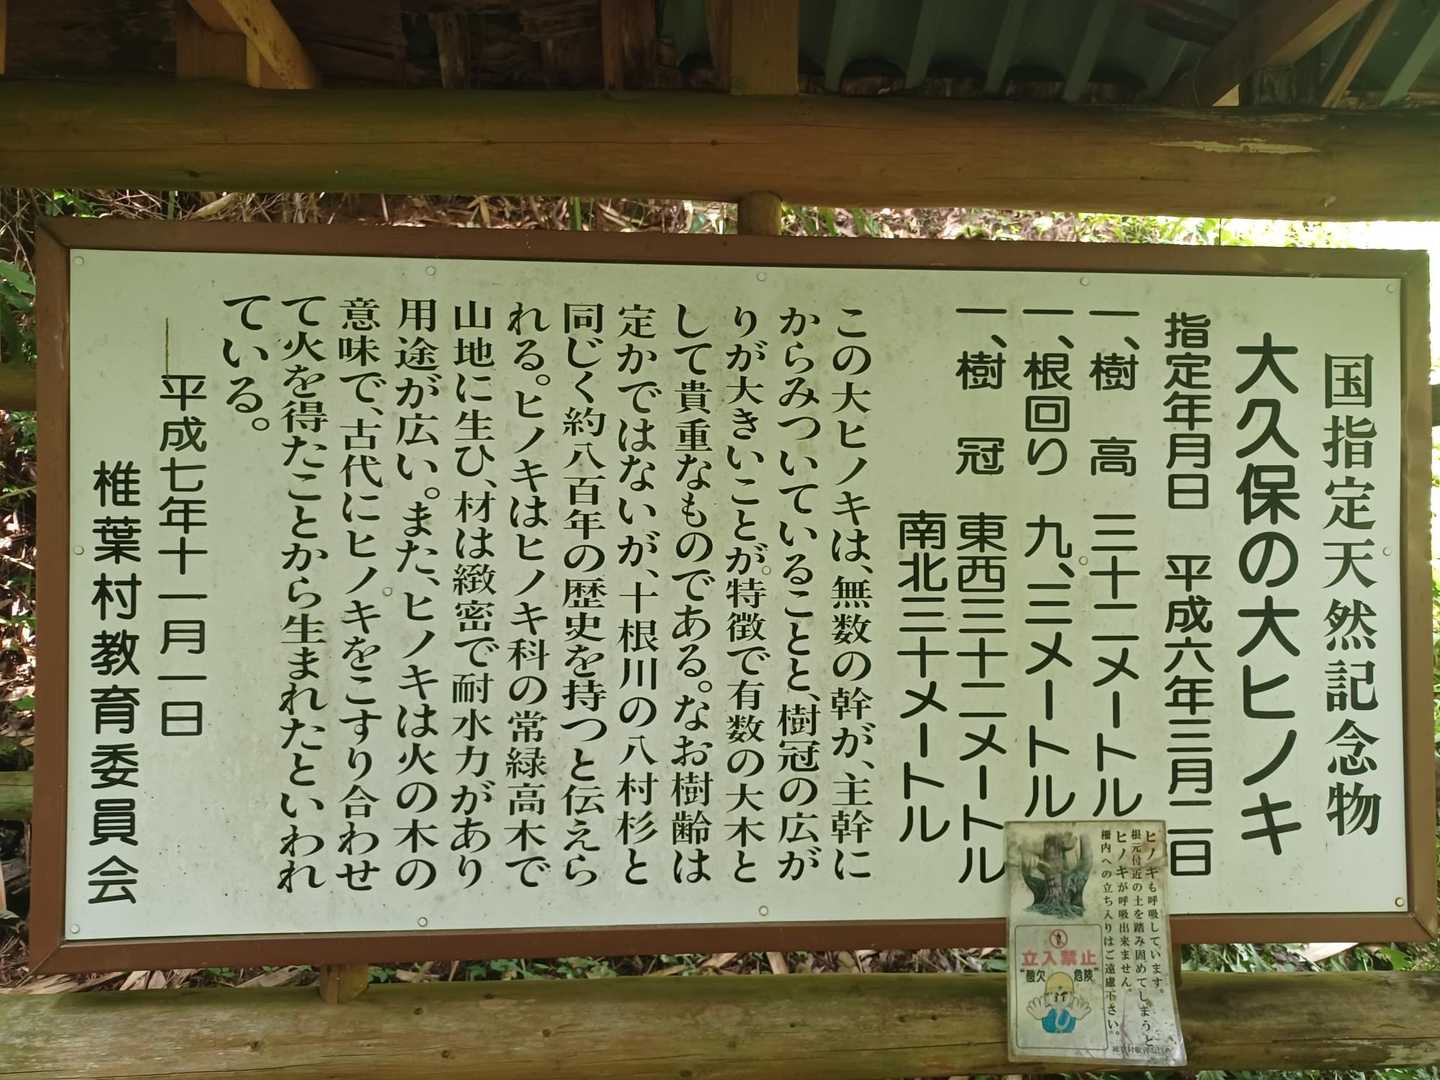 国指定天然記念物
大久保の大ヒノキ
指定年月日 平成六年三月二日
一、樹 高 三十二メートル
一、根回り 九、三メートル
一、樹 冠 東西三十二メートル
南北三十メートル
この大ヒノキは、無数の幹が、主幹に
からみついていることと、樹冠の広が
りが大きいことが、特徴で有数の大木と
して貴重なものである。なお樹齢は
定かではないが、十根川の八村杉と
同じく約八百年の歴史を持つと伝えら
れる。ヒノキはヒノキ科の常緑高木で
山地に生ひ、材は緻密で耐水力があり
用途が広い。また、ヒノキは火の木の
意味で、古代にヒノキをこすり合わせ
て火を得たことから生まれたといわれ
ている。
平成七年十一月一日
椎葉村教育委員会
ヒノキも呼吸しています。
根元付近の土を踏み固めてしまうと
ヒノキが呼吸出来ません。
柵内への立ち入りはご遠慮下さい。
立入禁止
"酸欠 危険"